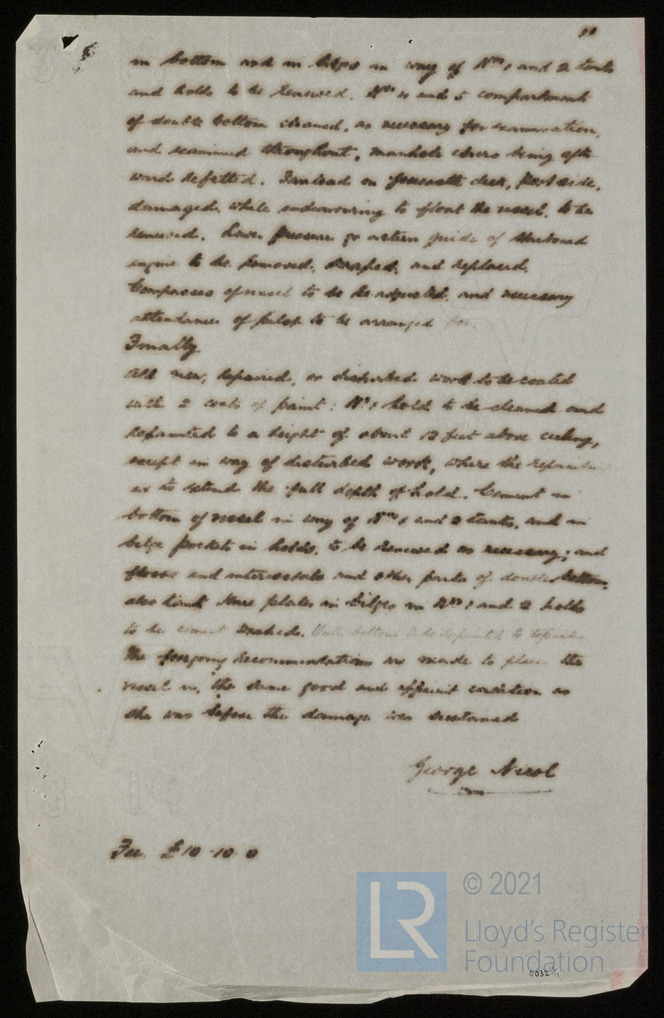 in bottom and in bilges in way of Nos 1 and 2 tanks
and holds to be renewed. Nos 4 and 5 compartments
of double bottom cleaned, as necessary for examination,
and examined throughout, manhole covers being after-
wards refitted. Fairlead on forecastle deck, port side,
damaged while endeavouring to float the vessel, to be
renewed. Lower pressure go astern guide of starboard
engine to be removed, scraped, and replaced.
Compasses of vessel to be re adjusted, and necessary
attendances of pilot to be arranged for.
Finally
All new, repaired, or disturbed work to be coated
with 2 coats of paint: No 1 hold to be cleaned and
repainted to a height of about 12 feet above ceiling,
except in way of disturbed work, where the
is to extend the full depth of hold. Cement in
bottom of vessel in way of Nos 1 and 2 tanks, and in
bilge pockets in holds, to be renewed as necessary; and
floors and intercostals and other parts of double bottom,
also tank plates in bilges in Nos 1 and 2 holds
to be cement washed. bottom to be repainted to
The foregoing recommendations are made to place the
vessel in the same good and efficient condition as
she was before the damage was sustained
George Nicol
Fee £10-10-0
LR © 2021
Lloyd's Register
Foundation